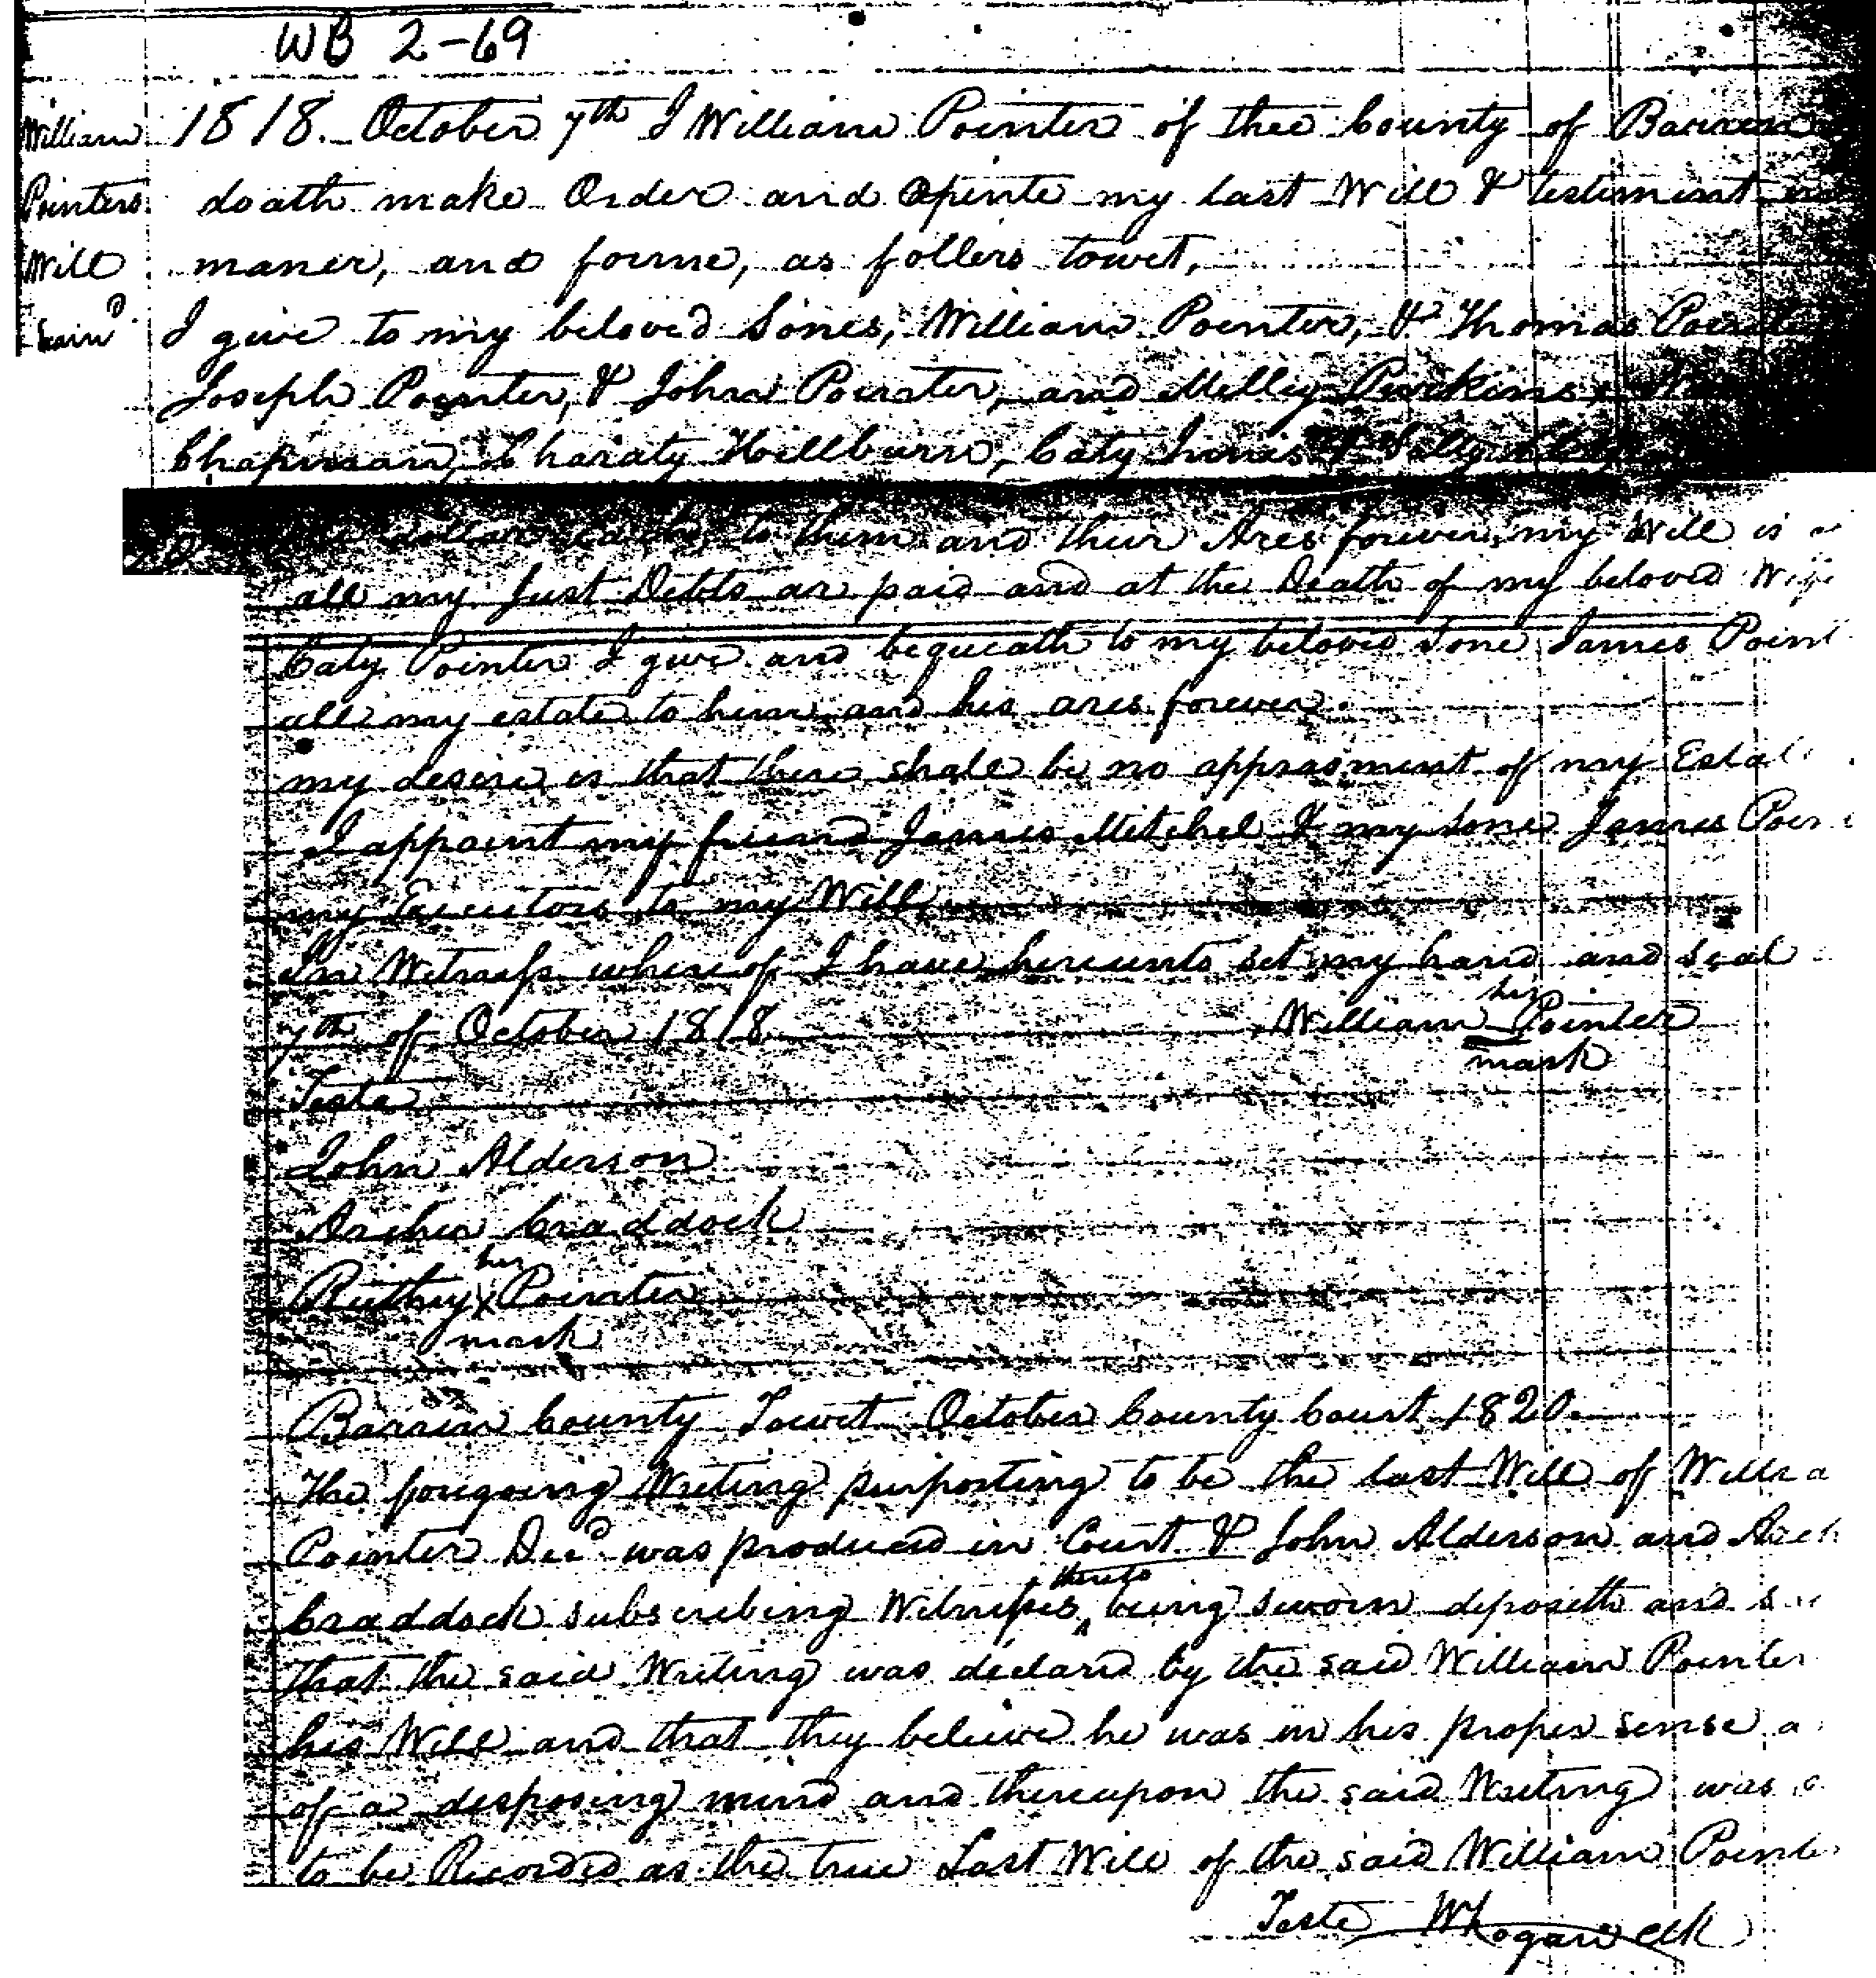 WB 2-69
William Pointers Will Exam^d
1818. October 7th I William Pointer of thee County of Barren
doath make Order and Apinte my last Will & testiment
maner, and forme, as follers towit,
I give to my beloved Sones, William Pointer, & Thomas Pointer
Joseph Pointer, & John Pointer, and Milley Perkins,
Chapman, Charaty Hillburn, Caty Innis & Salley
dollar each, to them and their Ares forever, my Will is
all my Just Debts ar paid and at the Death of my beloved Wife
Caty Pointer I give and bequeath to my beloved Sone James Point
all my estate to him and his ares forever.
my desire is that there shall be no apprasment of my Estat
I appoint my friend James Mitchel & my Sone James Poin
my Executors to my Will
In Witness whereof I have hereunto set my hand and seal
7th of October 1818
William his Pointer
mark
Teste
John Alderson
Archer Craddock
her
Ruthey X Pointer
mark
Barren County Towit October County Court 1820.
The forgoing Writing purporting to be the last Will of Willia
Pointer Dec^d was produced in Court & John Alderson and Arch
Craddock subscribing Witnesses thereto being sworn deposeth and
that the said Writing was declard by the said William Pointer
his Will and that they believe he was in his proper sense a
of a disposing mind and thereupon the said Writing was
to be Recorded as the true Last Will of the said William Pointe
Teste W Logan Clk